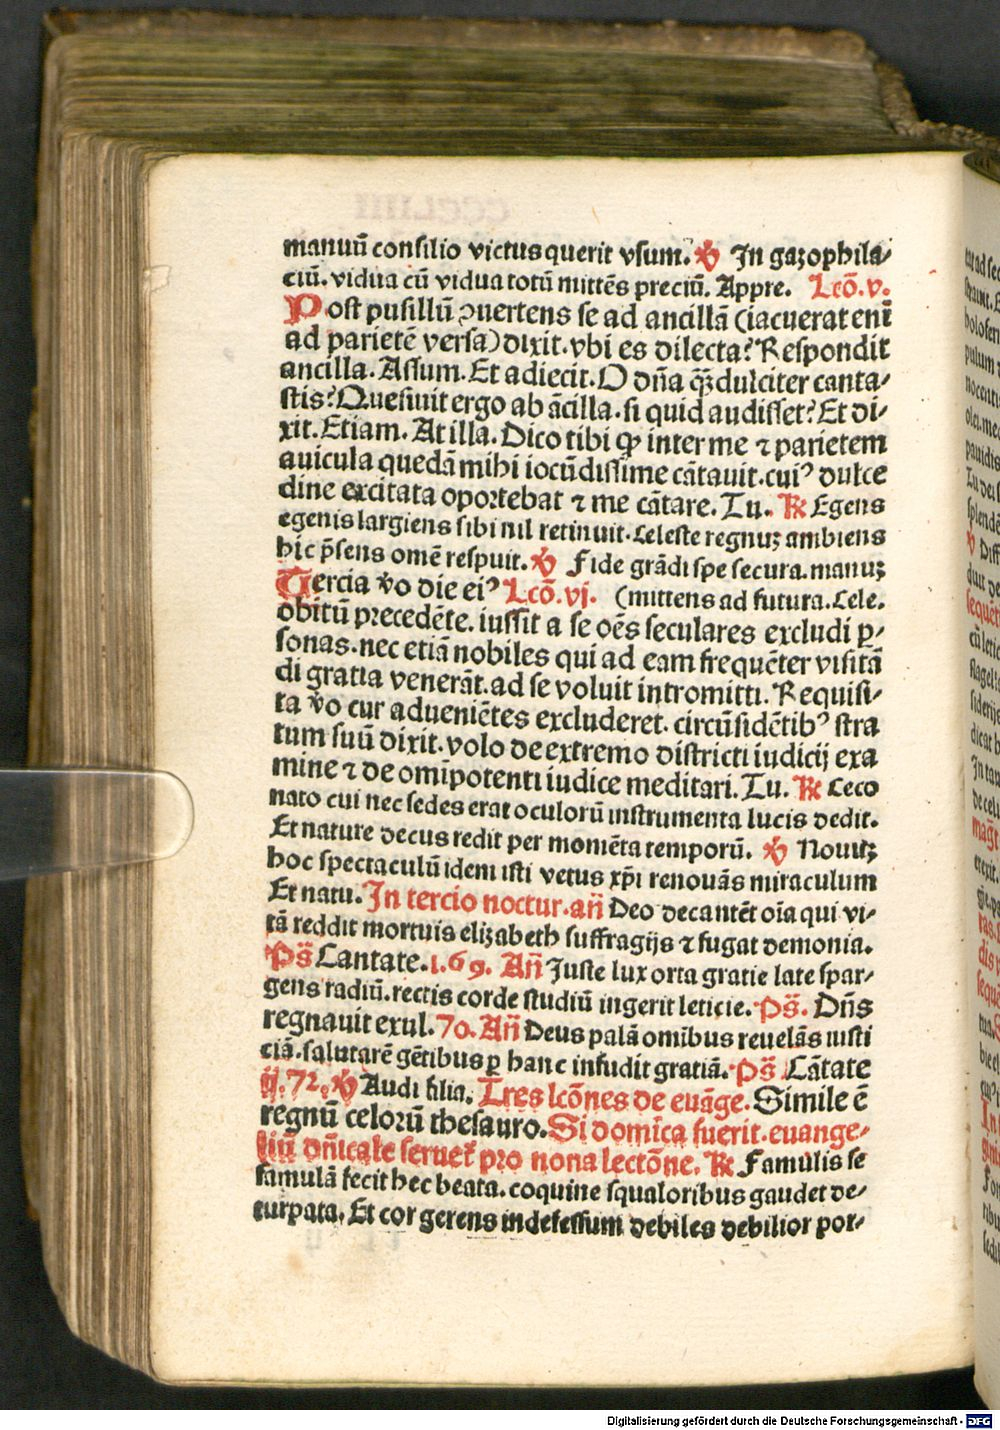 manuū consilio victus querit vsum. ℣ In gazophila⸗
ciū. vidua cū vidua totū mittēs preciū. Appre. Lcō. v.
Post pusillū ꝯuertens se ad ancillā (iacuerat enī
ad parietē versa) dixit. vbi es dilecta? Respondit
ancilla. Assum. Et adiecit. O dn̄a qꝫ̄ dulciter canta⸗
stis? Quesiuit ergo ab ācilla. si quid audisset? Et di⸗
xit. Etiam. At illa. Dico tibi ꝙ inter me ⁊ parietem
auicula quedā mihi iocūdissime cātauit. cuiꝰ dulce
dine excitata oportebat ⁊ me cātare. Tu. ℟ Egens
egenis largiens sibi nil retinuit. Celeste regnuꝫ ambiens
hic p̄sens omē respuit. ℣ Fide grādi spe secura. manuꝫ
Tercia v̄o die eiꝰ Lcō. vj. (mittens ad futura. Cele.
obitū precedēte. iussit a se oēs seculares excludi ꝑ⸗
sonas. nec etiā nobiles qui ad eam frequēter visitā
di gratia venerāt. ad se voluit intromitti. Requisi⸗
ta v̄o cur adueniētes excluderet. circūsidētibꝰ stra
tum suū dixit. volo de extremo districti iudicij exa
mine ⁊ de omīpotenti iudice meditari. Tu. ℟ Ceco
nato cui nec sedes erat oculorū instrumenta lucis dedit.
Et nature decus redit per momēta temporū. ℣ Nouitꝫ
hoc spectaculū idem isti vetus xp̄i renouās miraculum
Et natu. In tercio noctur. añ Deo decantēt oīa qui vi⸗
tā reddit mortuis elizabeth suffragijs ⁊ fugat demonia.
Ps̄ Cantate. 1. 69. Añ Juste lux orta gratie late spar⸗
gens radiū. rectis corde studiū ingerit leticie. Ps̄. Dn̄s
regnauit exul. 70. Añ Deus palā omībus reuelās iusti
ciā. salutarē gētibus ꝑ hanc infudit gratiā. Ps̄ Cātate
ij. 72. ℣ Audi filia. Tres lcōnes de euāge. Simile ē
regnū celorū thesauro. Si domīca fuerit. euange⸗
liū dn̄icale seruet᷑ pro nona lectōne. ℟ Famulis se
famulā fecit hec beata. coquine squaloribus gaudet de⸗
turpata. Et cor gerens indefessum debiles debilior por⸗
Digitalisierung gefördert durch die Deutsche Forschungsgemeinschaft - DFG